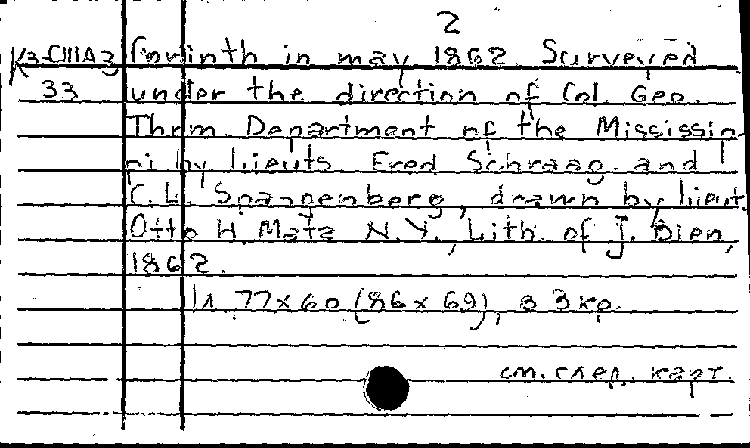 2
К3-СШАЗ Corinth in may 1862. Surveyed
33 under the direction of Col. Geo.
Thom. Department of the Mississip-
pi by lieuts. Fred Schraag and
C. L. Spangenberg, drawn by lieut.
Otto H. Matz N.Y., Lith. of J. Bien,
1862.
1л. 77x60 (86x69), в 3 кр.
см. след. карт.